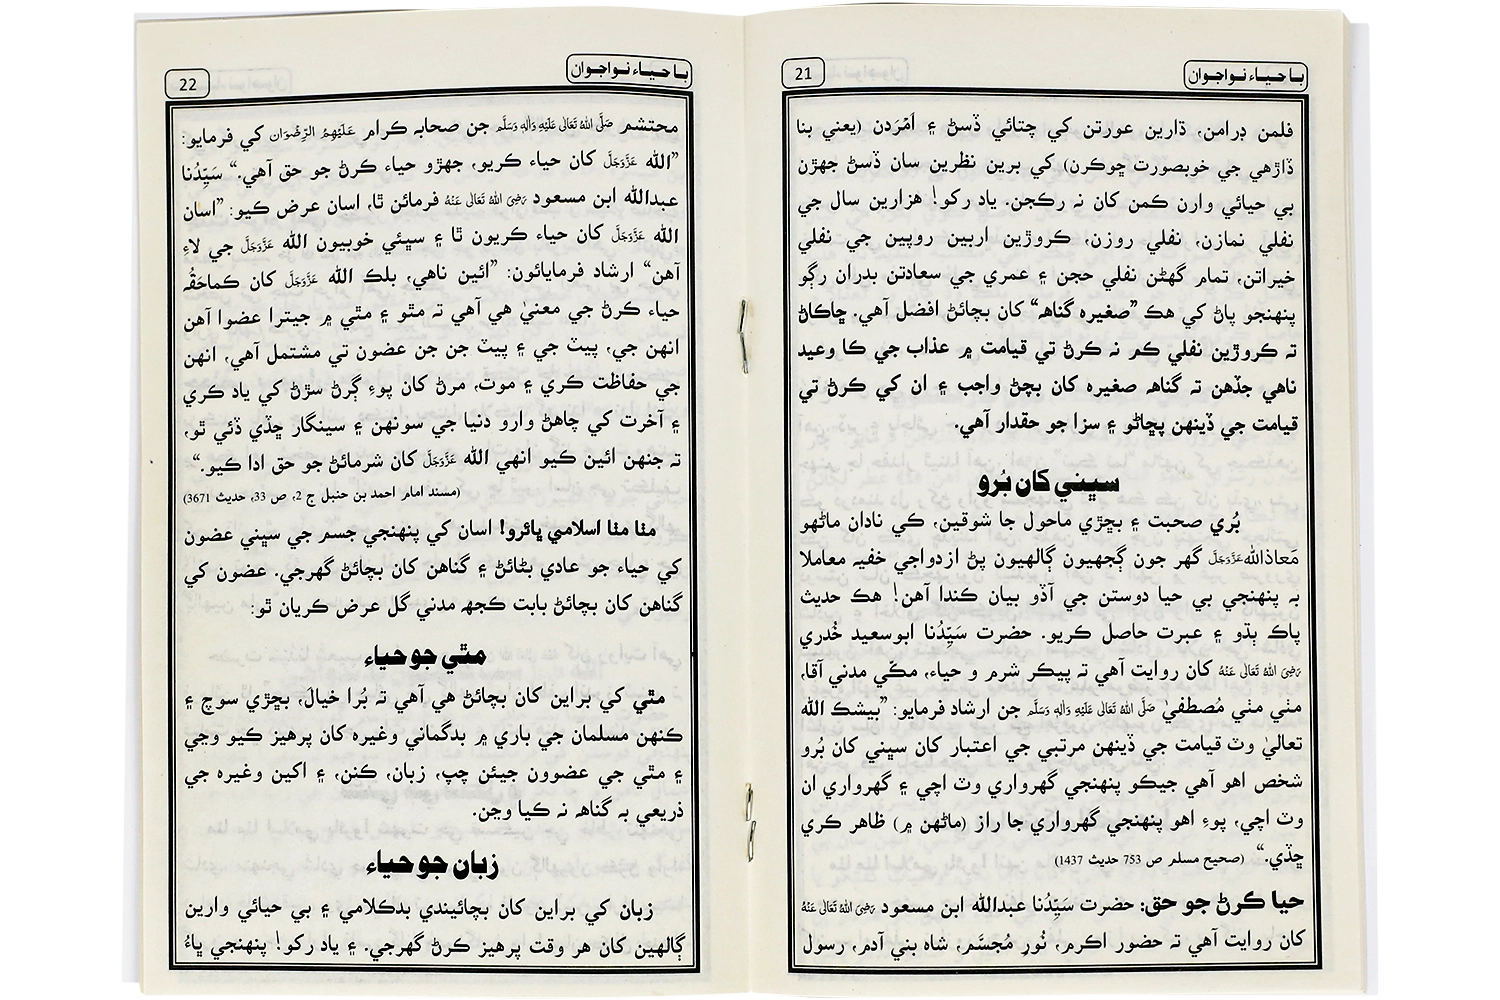 21
با حياء نواجوان
فلمن ڊرامن، ڌارين عورتن کي چتائي ڏسڻ ۽ اَمْرَدن (يعني بنا
ڏاڙهي جي خوبصورت ڇوڪرن) کي برين نظرين سان ڏسڻ جهڙن
بي حيائي وارن ڪمن کان نہ رڪجن. ياد رکو! هزارين سال جي
نفلي نمازن، نفلي روزن، ڪروڙين اربين روپين جي نفلي
خيراتن، تمام گهڻن نفلي حجن ۽ عمري جي سعادتن بدران رڳو
پنهنجو پاڻ کي هڪ ”صغيره گناهہ“ کان بچائڻ افضل آهي. ڇاڪاڻ
تہ ڪروڙين نفلي ڪم نہ ڪرڻ تي قيامت ۾ عذاب جي ڪا وعيد
ناهي جڏهن تہ گناهہ صغيره کان بچڻ واجب ۽ ان کي ڪرڻ تي
قيامت جي ڏينهن پڇاڻو ۽ سزا جو حقدار آهي.
سڀني کان بُرو
بُري صحبت ۽ بڇڙي ماحول جا شوقين، ڪي نادان ماڻهو
مَعاذالله عَزَّوَجَلَّ گهر جون ڳجهيون ڳالهيون پڻ ازدواجي خفيہ معاملا
بہ پنهنجي بي حيا دوستن جي آڏو بيان ڪندا آهن! هڪ حديث
پاڪ ٻڌو ۽ عبرت حاصل ڪريو. حضرت سَيِّدُنا ابوسعيد خُدري
رَضِیَ اللهُ تَعَالٰی عَنْهُ کان روايت آهي تہ پيڪر شرم و حياء، مڪّي مدني آقا،
مٺي مٺي مُصطفيٰ صَلَّى اللهُ تَعَالٰی عَلَيْهِ وَاٰلِهٖ وَسَلَّم جن ارشاد فرمايو: ”بيشڪ الله
تعاليٰ وٽ قيامت جي ڏينهن مرتبي جي اعتبار کان سڀني کان بُرو
شخص اهو آهي جيڪو پنهنجي گهرواري وٽ اچي ۽ گهرواري ان
وٽ اچي، پوءِ اهو پنهنجي گهرواري جا راز (ماڻهن ۾) ظاهر ڪري
ڇڏي.“ (صحيح مسلم ص 753 حديث 1437)
حيا ڪرڻ جو حق: حضرت سَيِّدُنا عبدالله ابن مسعود رَضِیَ اللهُ تَعَالٰی عَنْهُ
کان روايت آهي تہ حضور اڪرم، نُورِ مُجسَّم، شاه بني آدم، رسول
22
با حياء نواجوان
محتشم صَلَّى اللهُ تَعَالٰی عَلَيْهِ وَاٰلِهٖ وَسَلَّم جن صحابہ ڪرام عَلَيْهِمُ الرِّضْوَان کي فرمايو:
”الله عَزَّوَجَلَّ کان حياء ڪريو، جهڙو حياء ڪرڻ جو حق آهي.“ سَيِّدُنا
عبدالله ابن مسعود رَضِیَ اللهُ تَعَالٰی عَنْهُ فرمائن ٿا، اسان عرض ڪيو: ”اسان
الله عَزَّوَجَلَّ کان حياء ڪريون ٿا ۽ سڀئي خوبيون الله عَزَّوَجَلَّ جي لاءِ
آهن“ ارشاد فرمايائون: ”ائين ناهي، بلڪ الله عَزَّوَجَلَّ کان ڪماحَقُّہ
حياء ڪرڻ جي معنيٰ هي آهي تہ مٿو ۽ مٿي ۾ جيترا عضوا آهن
انهن جي، پيٽ جي ۽ پيٽ جن جن عضون تي مشتمل آهي، انهن
جي حفاظت ڪري ۽ موت، مرڻ کان پوءِ ڳرڻ سڙڻ کي ياد ڪري
۽ آخرت کي چاهڻ وارو دنيا جي سونهن ۽ سينگار ڇڏي ڏئي ٿو،
تہ جنهن ائين ڪيو انهي الله عَزَّوَجَلَّ کان شرمائڻ جو حق ادا ڪيو.“
(مسند امام احمد بن حنبل ج 2، ص 33، حديث 3671)
مٺا مٺا اسلامي ڀائرو! اسان کي پنهنجي جسم جي سڀني عضون
کي حياء جو عادي بڻائڻ ۽ گناهن کان بچائڻ گهرجي. عضون کي
گناهن کان بچائڻ بابت ڪجهہ مدني گل عرض ڪريان ٿو:
مٿي جو حياء
مٿي کي براين کان بچائڻ هي آهي تہ بُرا خيال، بڇڙي سوچ ۽
ڪنهن مسلمان جي باري ۾ بدگماني وغيره کان پرهيز ڪيو وڃي
۽ مٿي جي عضوون جيئن چپ، زبان، ڪنن، ۽ اکين وغيره جي
ذريعي بہ گناهہ نہ ڪيا وڃن.
زبان جو حياء
زبان کي براين کان بچائيندي بدڪلامي ۽ بي حيائي وارين
ڳالهين کان هر وقت پرهيز ڪرڻ گهرجي. ۽ ياد رکو! پنهنجي ڀاءُ